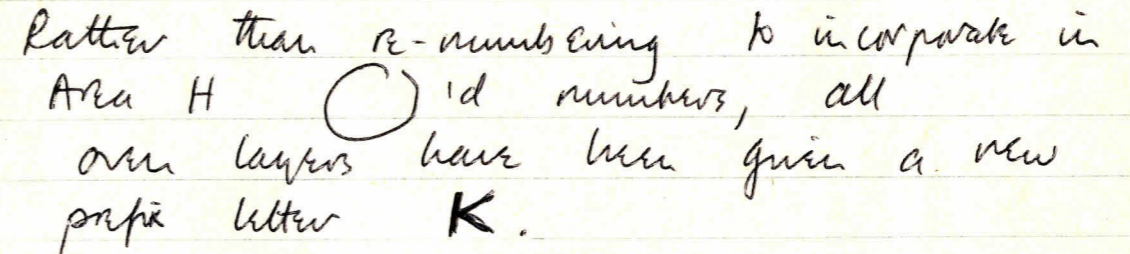 Rather than re-numbering to incorporate in
Area H ◯'d numbers, all
oven layers have been given a new
prefix letter K.